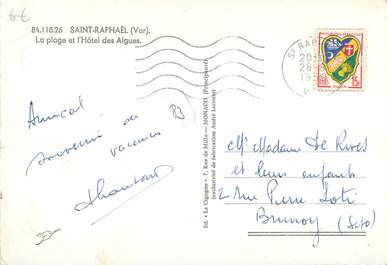 6€
84.118.26 SAINT-RAPHAËL (Var).
La plage et l'Hôtel des Algues.
Amical
souvenir de
vacances
Éd. « La Cigogne », 7, Rue de Millo — MONACO (Principauté)
(exclusivité de fabrication André Leconte)
ST RA
28
15F
M. Madame De Rives
et leurs enfants
2 Rue Pierre Loti
Brunoy (S et O)